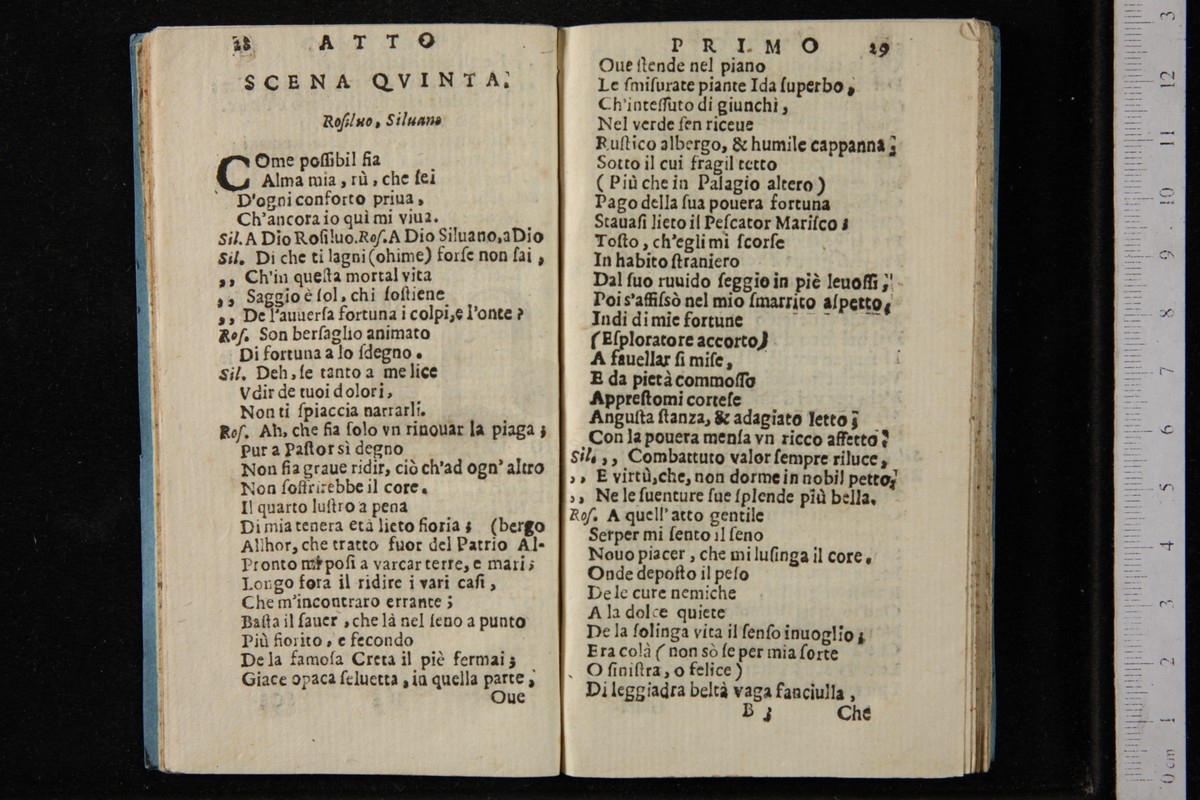 28 ATTO
SCENA QVINTA.
Rosiluo, Siluano
COme possibil fia
Alma mia, tù, che sei
D'ogni conforto priua,
Ch'ancora io quì mi viua.
Sil. A Dio Rosiluo. Ros. A Dio Siluano, a Dio
Sil. Di che ti lagni (ohime) forse non sai,
,, Ch'in questa mortal vita
,, Saggio è sol, chi sostiene
,, De l'auuersa fortuna i colpi, e l'onte?
Ros. Son bersaglio animato
Di fortuna a lo sdegno.
Sil. Deh, se tanto a me lice
Vdir de tuoi dolori,
Non ti spiaccia narrarli.
Ros. Ah, che fia solo vn rinouar la piaga;
Pur a Pastor sì degno
Non fia graue ridir, ciò ch'ad ogn' altro
Non soffrirebbe il core.
Il quarto lustro a pena
Di mia tenera età lieto fioria; (bergo
Allhor, che tratto fuor del Patrio Al-
Pronto mi posi a varcar terre, e mari;
Longo fora il ridire i vari casi,
Che m'incontraro errante;
Basta il sauer, che là nel seno a punto
Più fiorito, e fecondo
De la famosa Creta il piè fermai;
Giace opaca seluetta, in quella parte,
Oue
PRIMO 29
Oue stende nel piano
Le smisurate piante Ida superbo,
Ch'intessuto di giunchi,
Nel verde sen riceue
Rustico albergo, & humile cappanna;
Sotto il cui fragil tetto
(Più che in Palagio altero)
Pago della sua pouera fortuna
Stauasi lieto il Pescator Marisco;
Tosto, ch'egli mi scorse
In habito straniero
Dal suo ruuido seggio in piè leuossi;
Poi s'affissò nel mio smarrito aspetto,
Indi di mie fortune
(Esploratore accorto)
A fauellar si mise,
E da pietà commosso
Apprestomi cortese
Angusta stanza, & adagiato letto;
Con la pouera mensa vn ricco affetto:
Sil. ,, Combattuto valor sempre riluce,
,, E virtù, che, non dorme in nobil petto,
,, Ne le suenture sue splende più bella.
Ros. A quell' atto gentile
Serper mi sento il seno
Nouo piacer, che mi lusinga il core.
Onde deposto il peso
De le cure nemiche
A la dolce quiete
De la solinga vita il senso inuoglio;
Era colà (non sò se per mia sorte
O sinistra, o felice)
Di leggiadra beltà vaga fanciulla,
B 3 Che
0 cm 1 2 3 4 5 6 7 8 9 10 11 12 3